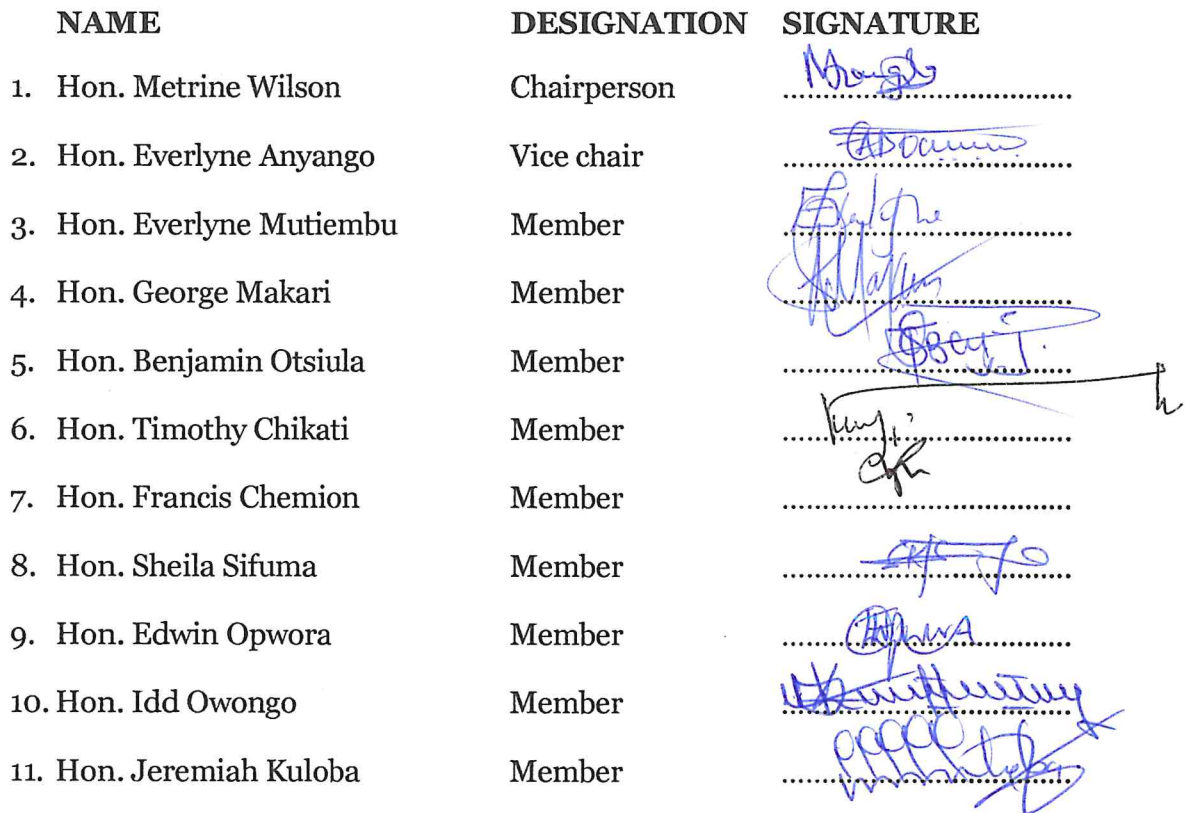 NAME DESIGNATION SIGNATURE
1. Hon. Metrine Wilson Chairperson
2. Hon. Everlyne Anyango Vice chair
3. Hon. Everlyne Mutiembu Member
4. Hon. George Makari Member
5. Hon. Benjamin Otsiula Member
6. Hon. Timothy Chikati Member
7. Hon. Francis Chemion Member
8. Hon. Sheila Sifuma Member
9. Hon. Edwin Opwora Member
10. Hon. Idd Owongo Member
11. Hon. Jeremiah Kuloba Member